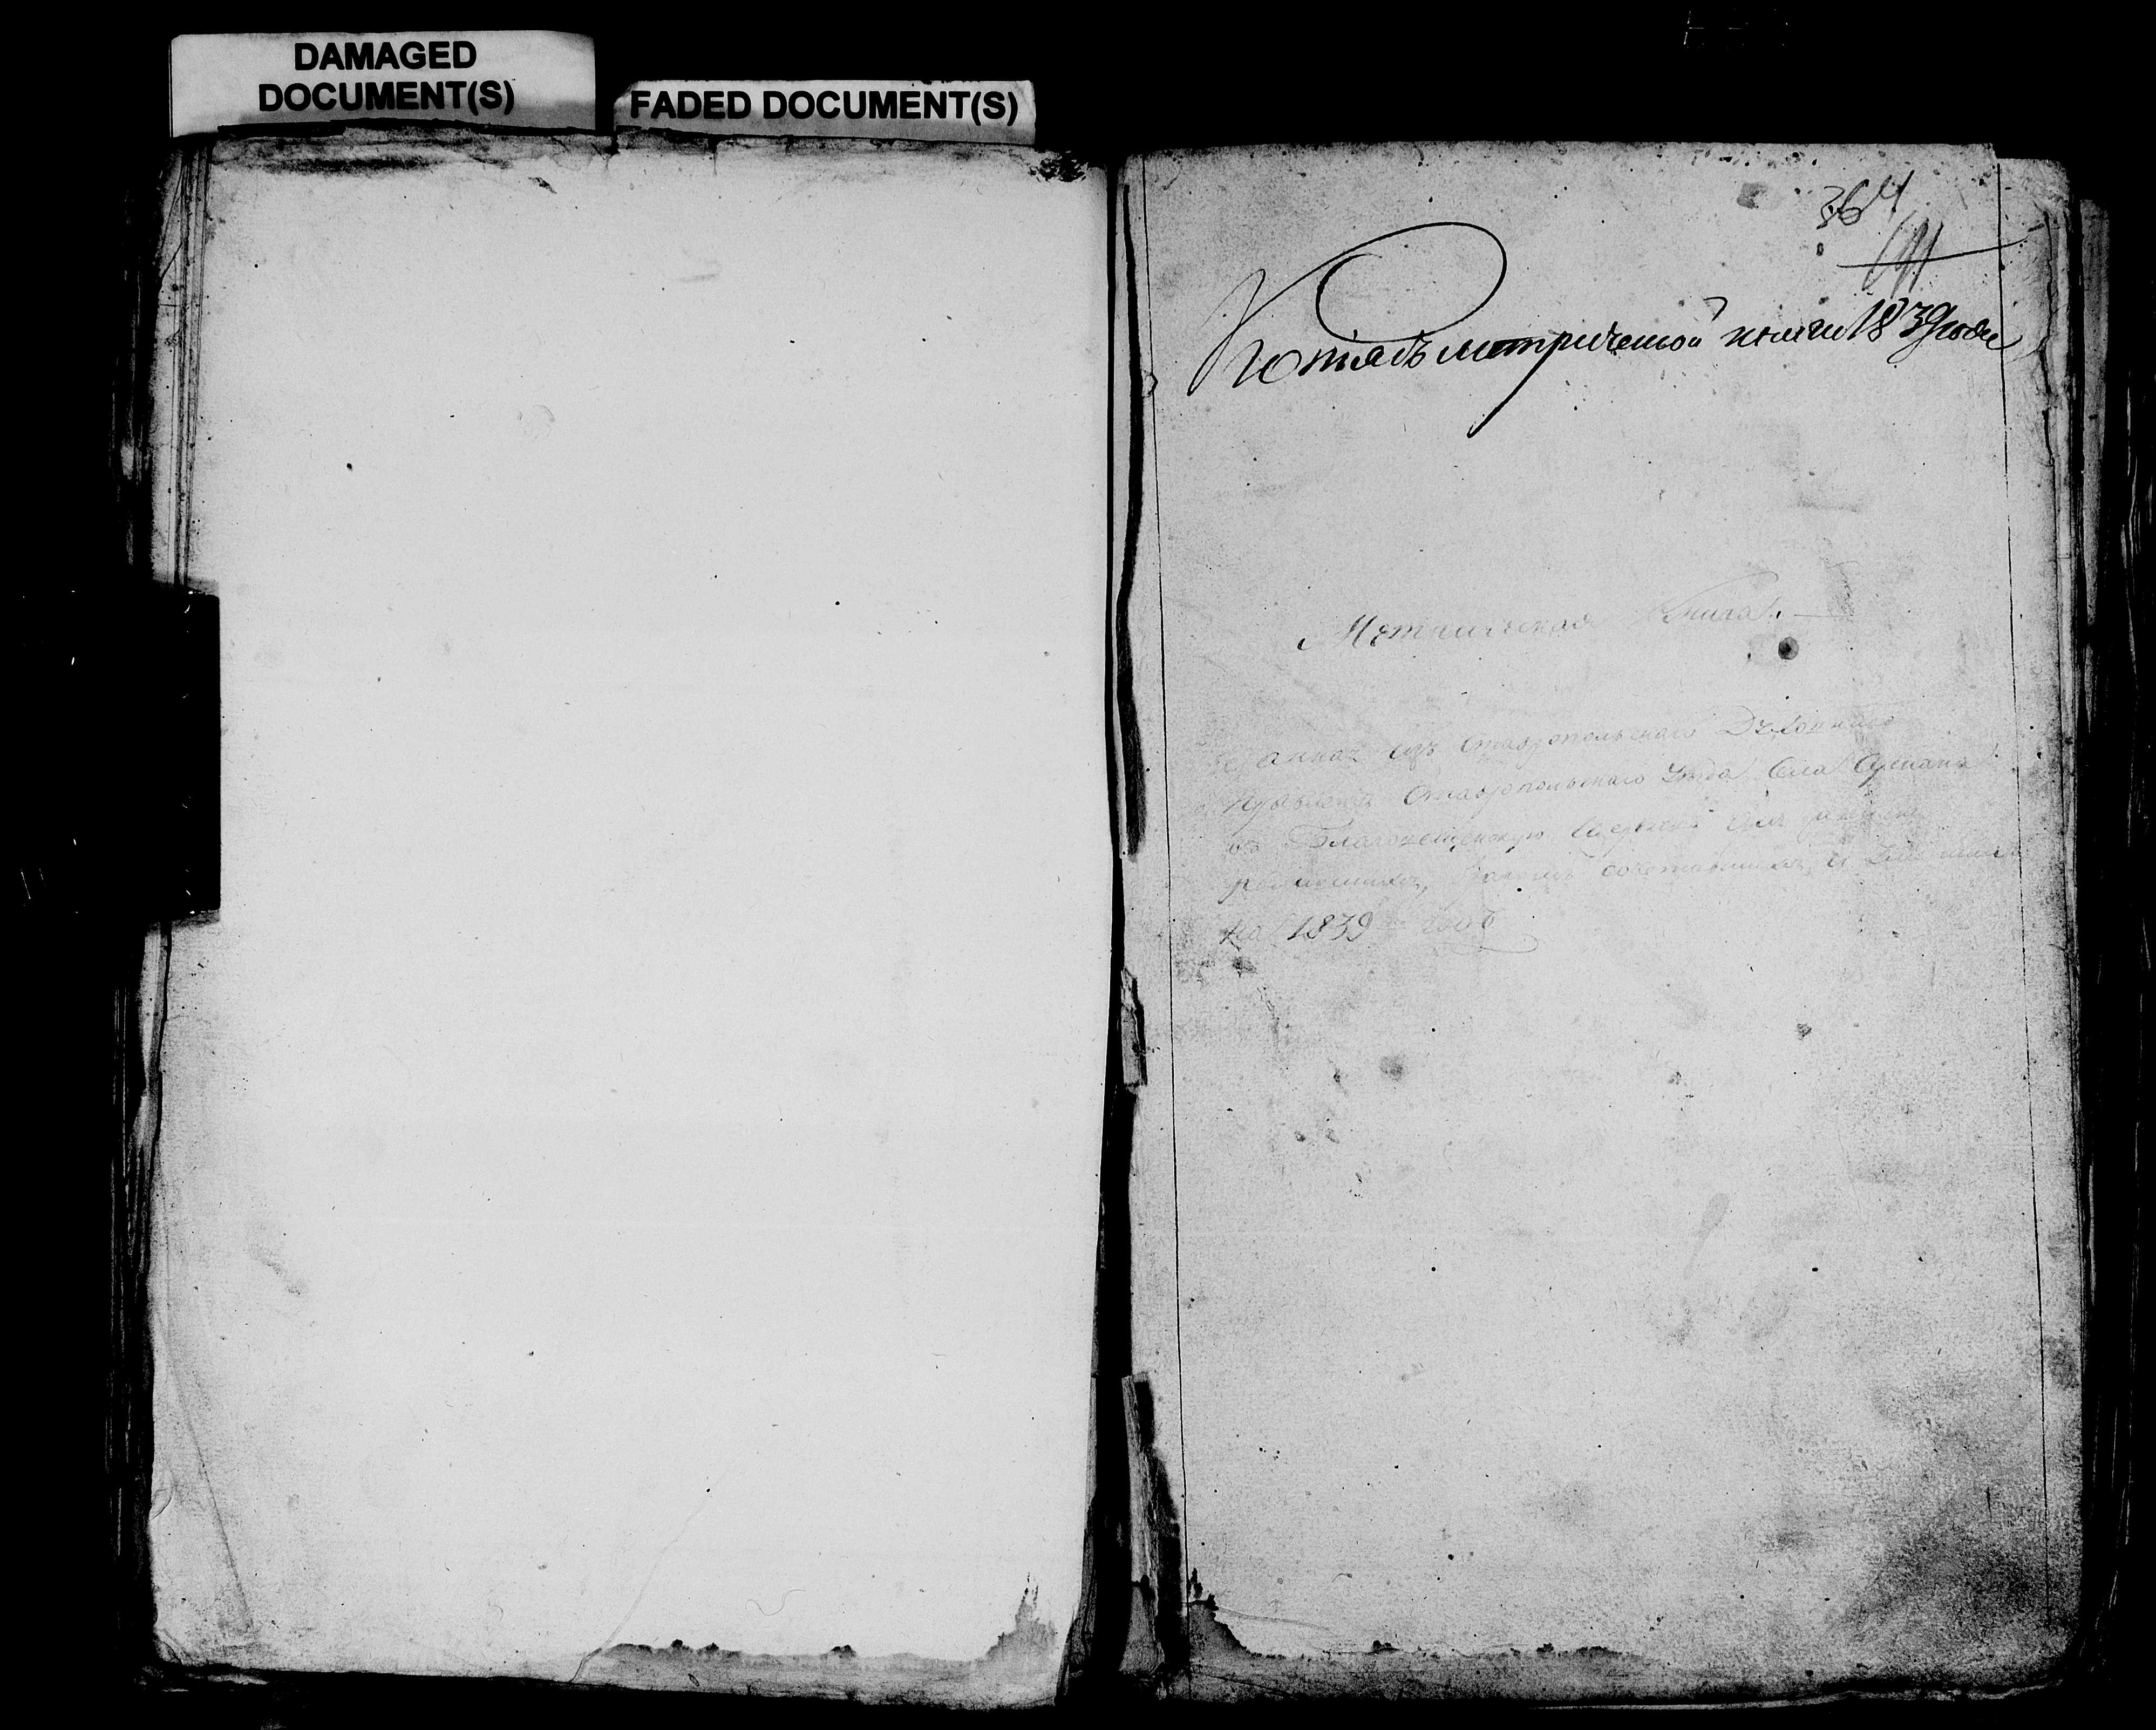 DAMAGED
DOCUMENT(S)
FADED DOCUMENT(S)
364
Копiя съ метрической книги 1839 года
Метрическая Книга.
Данная изъ Ставропольскаго Духовнаго
Правленiя Ставропольскаго Уезда Села
въ Благовещенскую Церковь для записи
родившихся, бракомъ сочетавшихся, и
на 1839 годъ